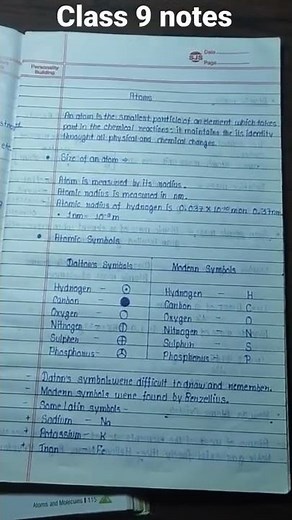 Class 9 notes
Personality
Building
SJS
Date
Page
Atoms
An atom is the smallest particle of an element which takes
part in the chemical reactions it maintains the its identity
throught all physical and chemical changes.
• Size of an atom
- Atom is measured by its radius.
- Atomic radius is measured in nm.
- Atomic radius of hydrogen is
• Atomic Symbols
Daltons Symbols Modern Symbols
Hydrogen - Hydrogen - H
Carbon - Carbon - C
Oxygen - Oxygen - O
Nitrogen - Nitrogen - N
Sulphur - Sulphur - S
Phosphorus - Phosphorus - P
- symbols were difficult to draw and remember.
- Modern symbols were found by Benzellius.
- Some latin symbols -
+ Sodium - Na
+ Potassium - K
+ Iron - Fe
Atoms and Molecules 115